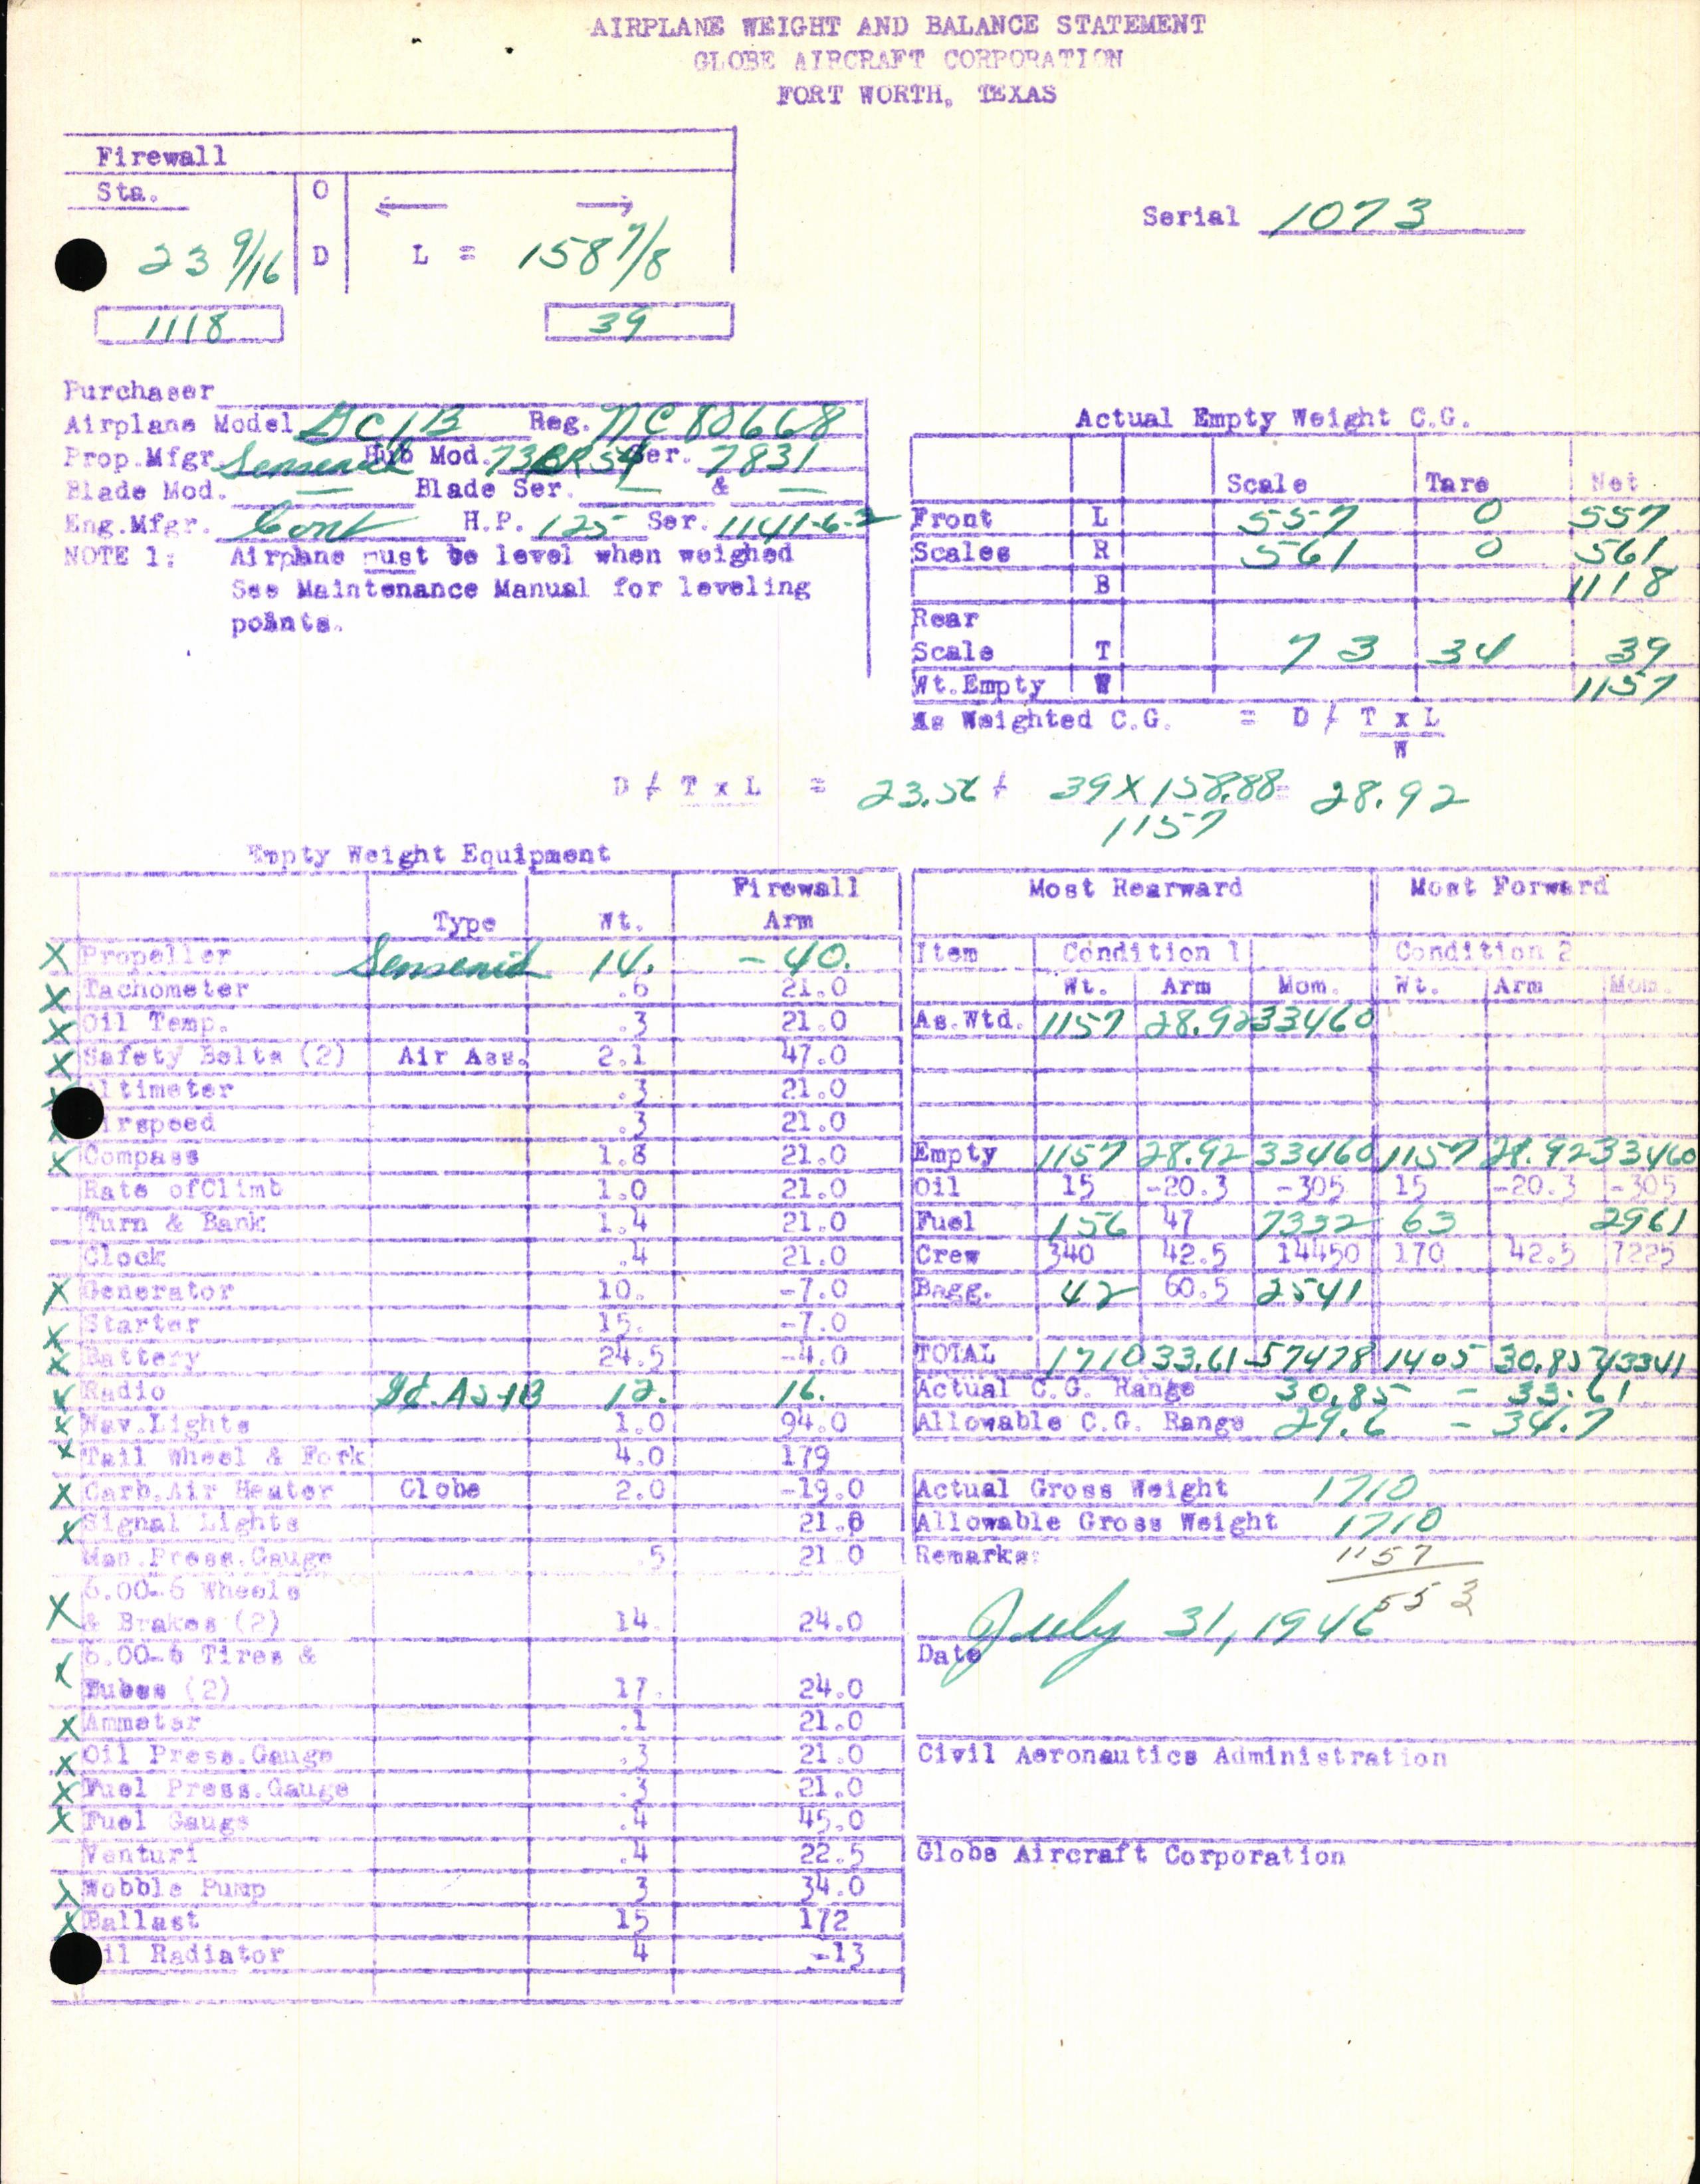 AIRPLANE WEIGHT AND BALANCE STATEMENT
GLOBE AIRCRAFT CORPORATION
FORT WORTH, TEXAS
Firewall
Sta. O ← →
23 9/16 D L = 158 7/8
1118 39
Serial 1073
Purchaser
Airplane Model GC1B Reg. NC 80668
Prop.Mfgr Sensenich Hub Mod. 73BR54 Ser. 7831
Blade Mod. — Blade Ser. — & —
Eng.Mfgr. Cont H.P. 125 Ser. 1141-6-2
NOTE 1: Airplane must be level when weighed
See Maintenance Manual for leveling
points.
Actual Empty Weight C.G.
Scale Tare Net
Front L 557 0 557
Scales R 561 0 561
B 1118
Rear
Scale T 73 34 39
Wt.Empty W 1157
As Weighted C.G. = D ⁄ T x L
W
D ⁄ T x L = 23.56 + 39 X 158.88 = 28.92
1157
Empty Weight Equipment
Type Wt. Firewall Arm
X Propeller Sensenich 14. -40.
X Tachometer .6 21.0
X Oil Temp. .3 21.0
X Safety Belts (2) Air Ass. 2.1 47.0
X ltimeter .3 21.0
X irspeed .3 21.0
X Compass 1.8 21.0
Rate ofClimb 1.0 21.0
Turn & Bank 1.4 21.0
Clock .4 21.0
X Generator 10. -7.0
X Starter 15. -7.0
X Battery 24.5 -4.0
X Radio AS-1B 12. 16.
X Nav.Lights 1.0 94.0
X Tail Wheel & Fork 4.0 179
X Carb.Air Heater Globe 2.0 -19.0
X Signal Lights 21.0
Man.Press.Gauge .5 21.0
6.00-6 Wheels
X & Brakes (2) 14. 24.0
6.00-6 Tires &
X Tubes (2) 17. 24.0
X Ammeter .1 21.0
X Oil Press.Gauge .3 21.0
X Fuel Press.Gauge .3 21.0
X Fuel Gauge .4 45.0
Venturi .4 22.5
X Wobble Pump 3 34.0
X Ballast 15 172
il Radiator 4 -13
Most Rearward Most Forward
Item Condition 1 Condition 2
Wt. Arm Mom. Wt. Arm Mom.
As.Wtd. 1157 28.92 33460
Empty 1157 28.92 33460 1157 28.92 33460
Oil 15 -20.3 -305 15 -20.3 -305
Fuel 156 47 7332 63 2961
Crew 340 42.5 14450 170 42.5 7225
Bagg. 42 60.5 2541
TOTAL 1710 33.61 57478 1405 30.85 43341
Actual C.G. Range 30.85 - 33.61
Allowable C.G. Range 29.6 - 34.7
Actual Gross Weight 1710
Allowable Gross Weight 1710
Remarks: 1157
553
July 31, 1946
Date
Civil Aeronautics Administration
Globe Aircraft Corporation